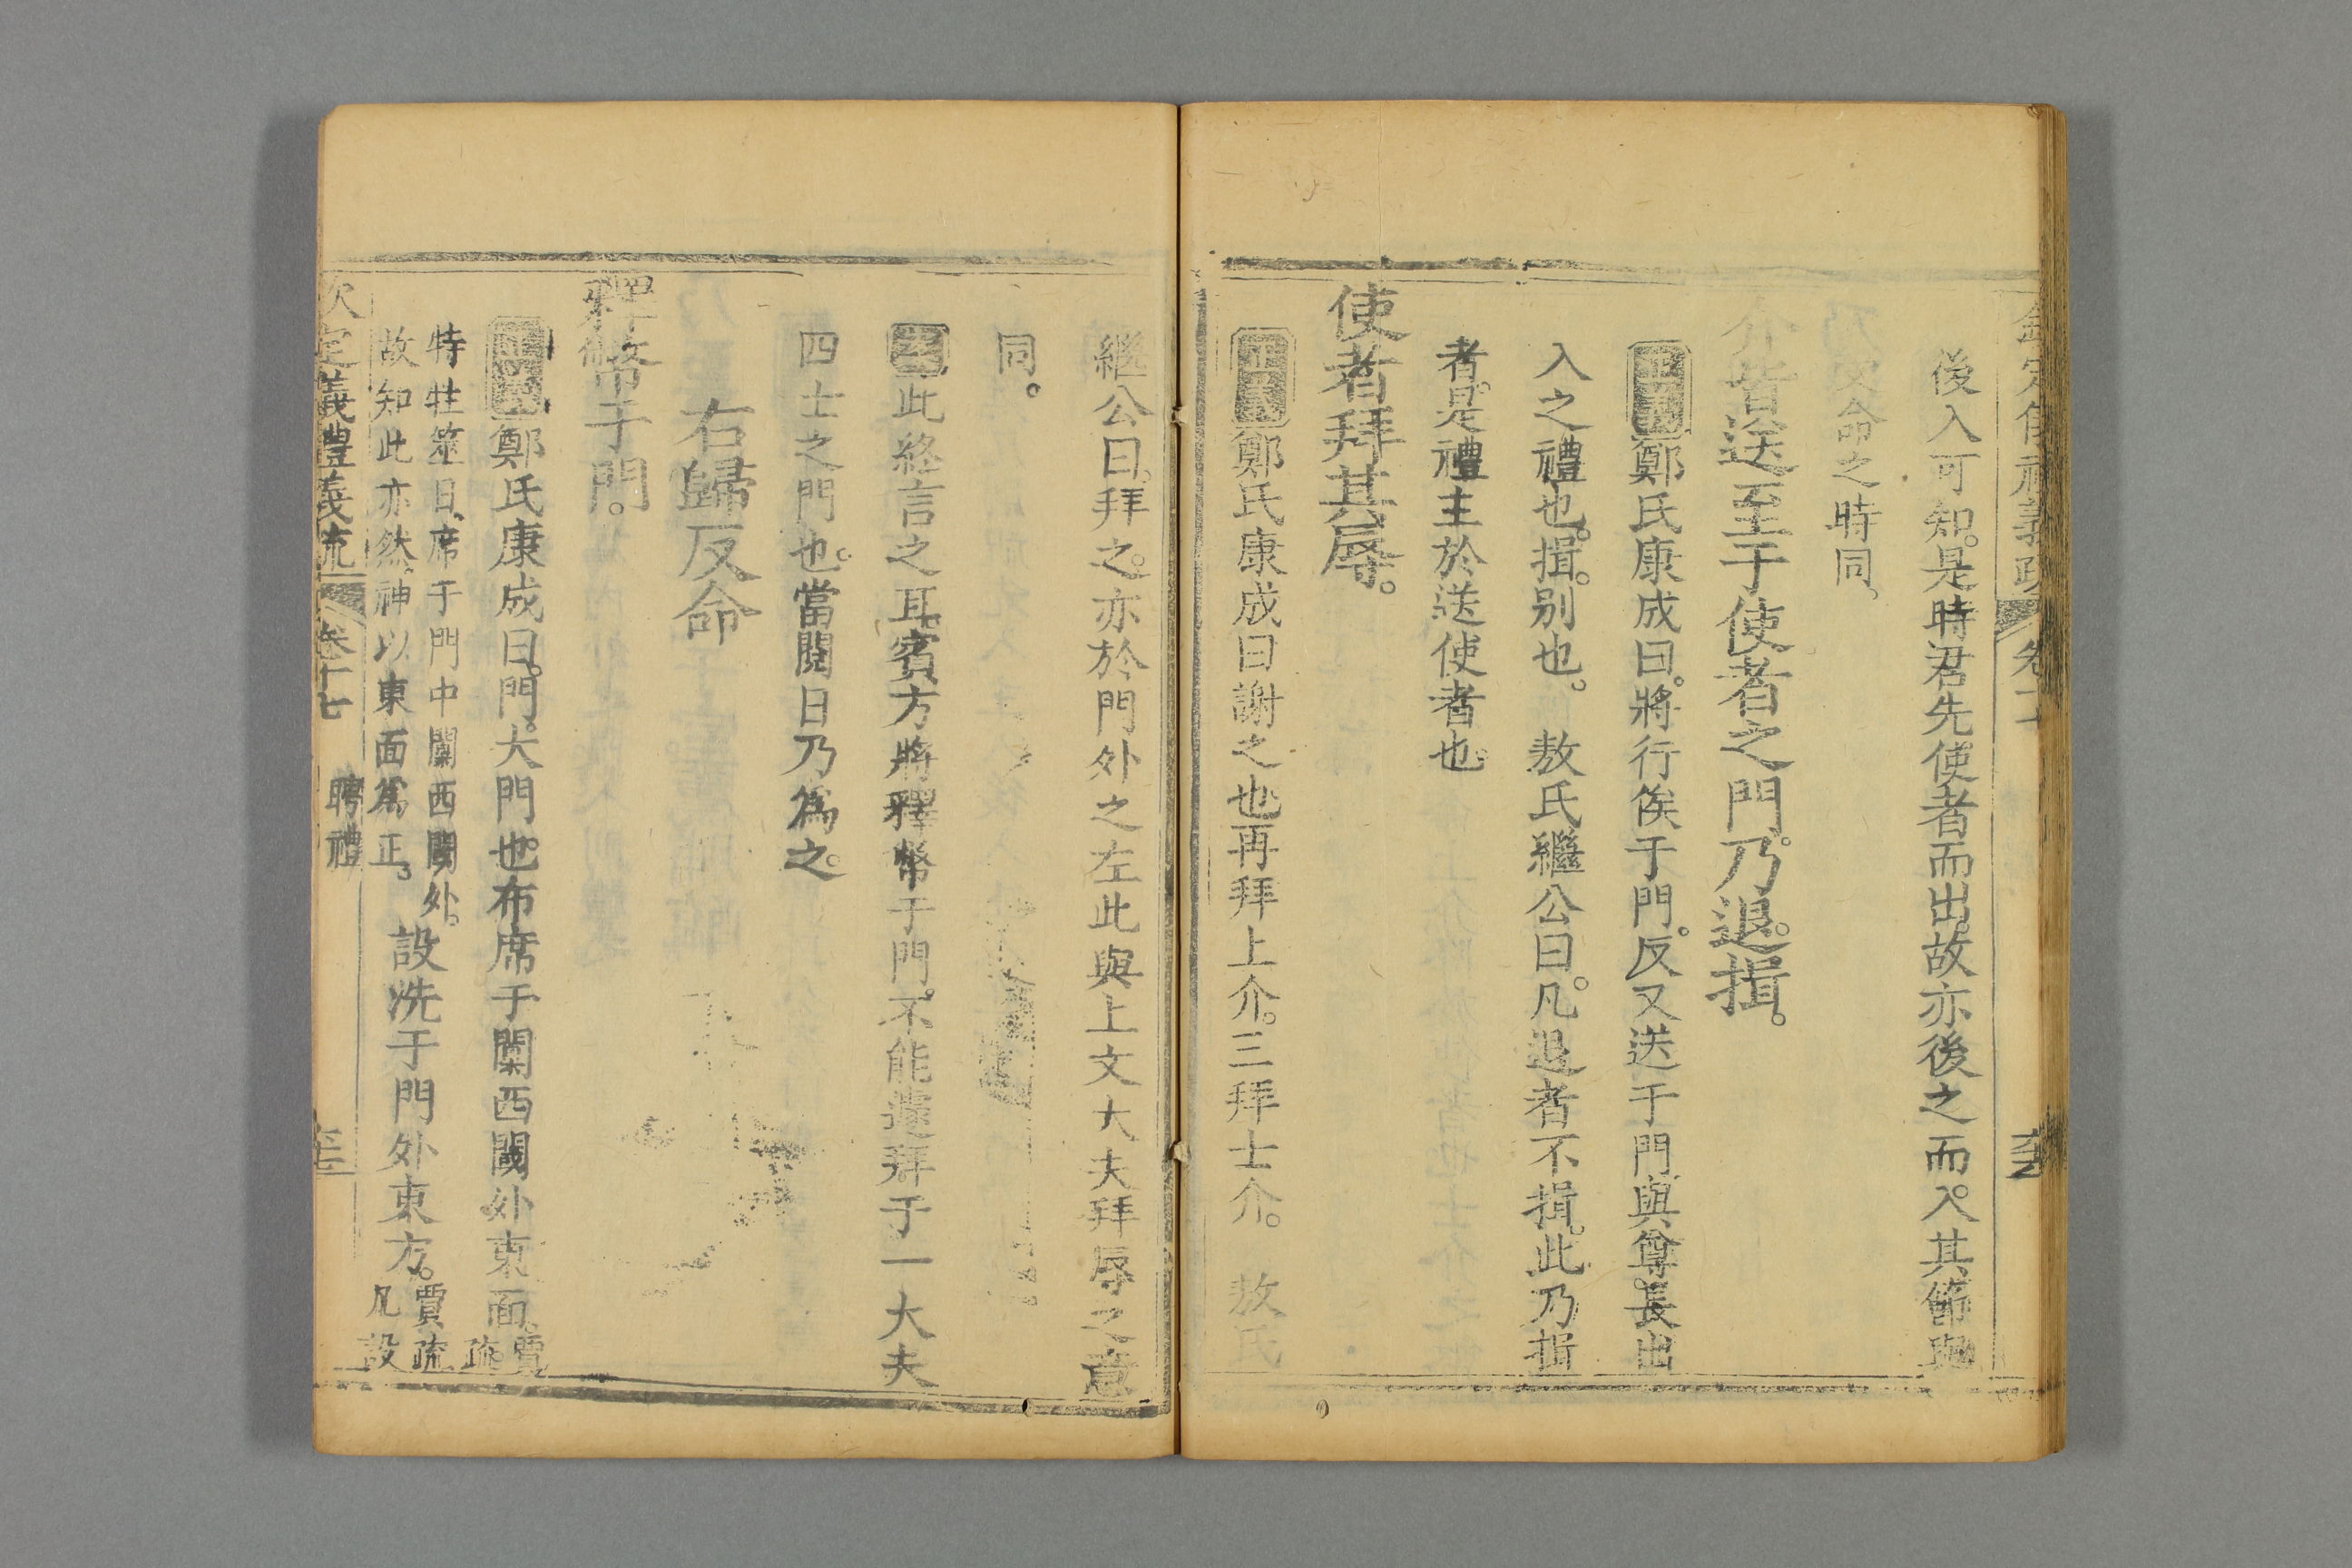 後入可知。是時君先使者而出。故亦後之而入。其節與
乃受命之時同。
介皆送至于使者之門。乃退。揖。
正義鄭氏康成曰。將行俟于門。反又送于門。與尊長出
入之禮也。揖。別也。 敖氏繼公曰。凡退者不揖。此乃揖
者。是禮主於送使者也。
使者拜其辱。
正義鄭氏康成曰謝之也。再拜上介。三拜士介。 敖氏
繼公曰。拜之。亦於門外之左。此與上文大夫拜辱之意
同。
此終言之耳。賓方將釋幣于門。不能遽拜于一大夫
四士之門也。當閱日乃爲之。
右歸反命
釋幣于門。
正義鄭氏康成曰。門。大門也。布席于闑西閾外。東面。賈疏
特牲筮日。席于門中闑西閾外。
故知此亦然。神以東面爲正。
設洗于門外東方。賈疏
凡設
欽定儀禮義疏 卷十七 聘禮